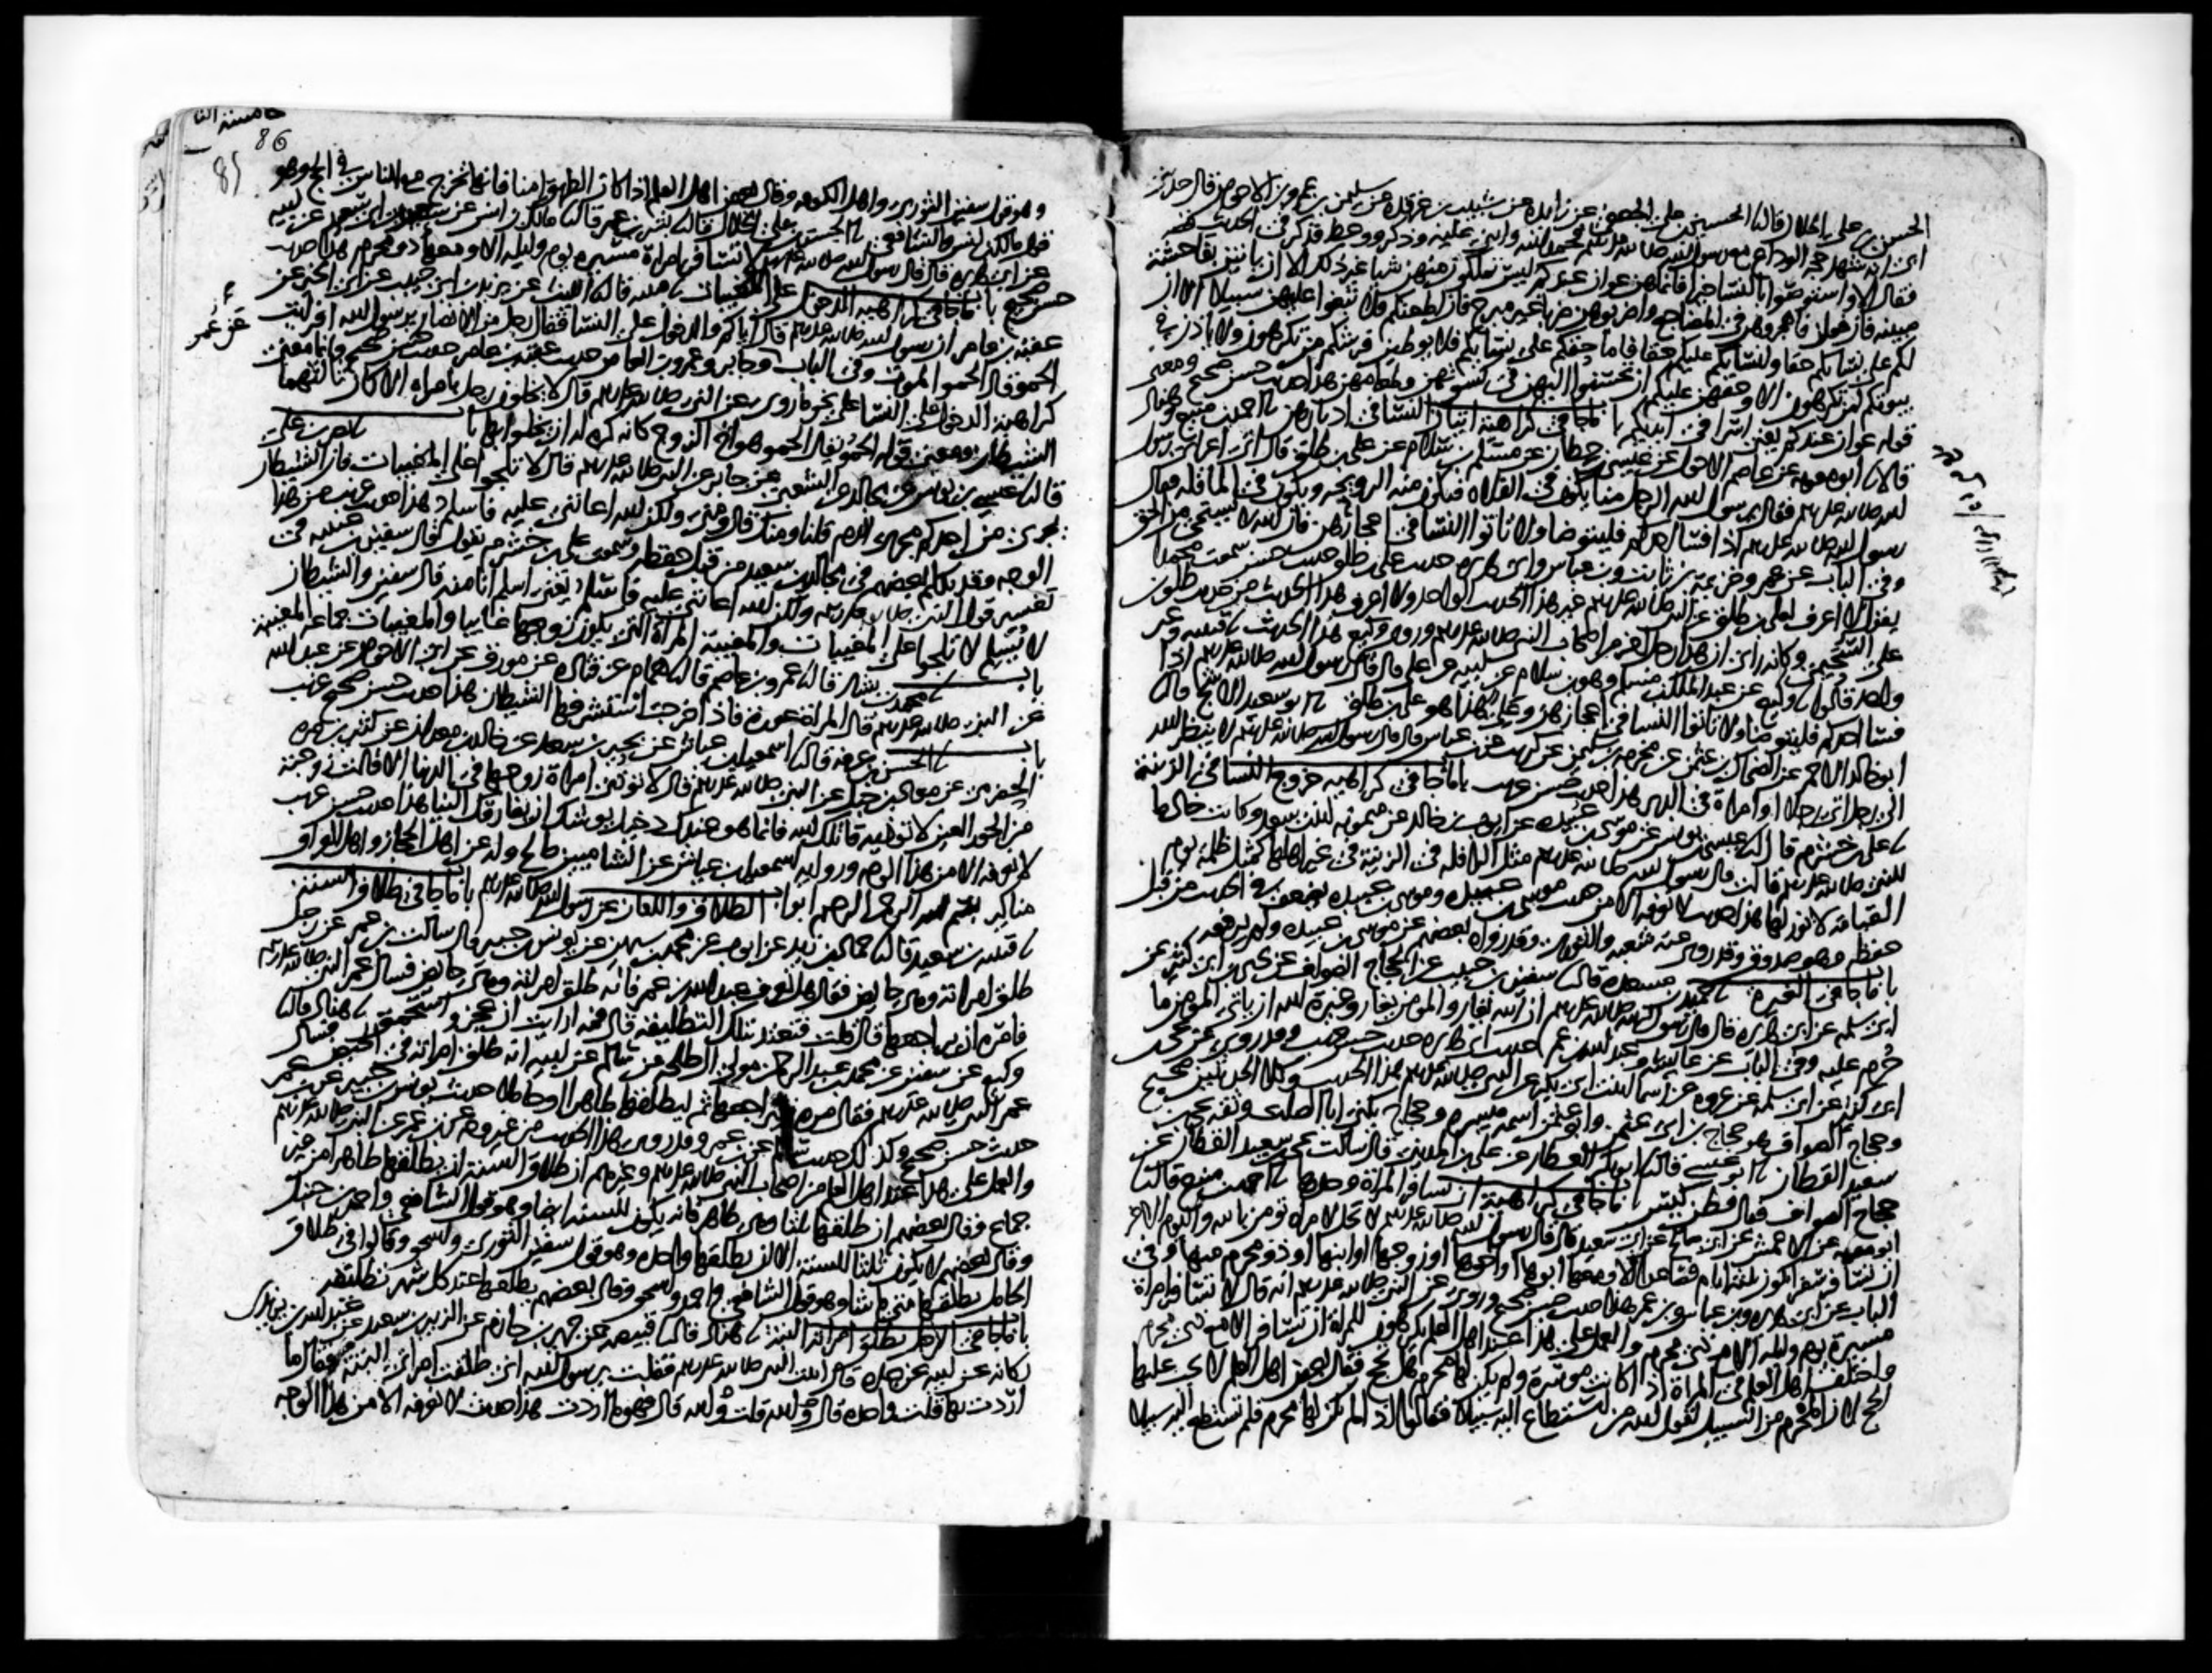 الحسن بن علي الخلال قال نا الحسين بن علي الجعفي عن زايدة عن شبيب بن غرقدة عن سليمن بن عمرو بن الاحوص قال حدثني
ابي انه شهد حجة الوداع مع رسول الله صلى الله عليه وسلم فحمد الله واثنى عليه وذكر ووعظ فذكر في الحديث قصة
فقال الا واستوصوا بالنسا خيرا فانما هن عوان عندكم ليس تملكون منهن شيا غير ذلك الا ان ياتين بفاحشة
مبينة فان فعلن فاهجروهن في المضاجع واضربوهن ضربا غير مبرح فان اطعنكم فلا تبغوا عليهن سبيلا الا ان
لكم على نسايكم حقا ولنسايكم عليكم حقا فاما حقكم على نسايكم فلا يوطين فرشكم من تكرهون ولا ياذن في
بيوتكم لمن تكرهون الا وحقهن عليكم ان تحسنوا اليهن في كسوتهن وطعامهن هذا حديث حسن صحيح ومعنى
قوله عوان عندكم يعني اسرا في ايديكم باب ما جا في كراهية اتيان النسا في ادبارهن نا احمد بن منيع وهناد
قالا نا ابو معوية عن عاصم الاحول عن عيسى بن حطان عن مسلم بن سلام عن علي بن طلق قال اتى اعرابي رسول
الله صلى الله عليه وسلم فقال يرسول الله الرجل منا يكون في الفلاة فتكون منه الرويحة ويكون في الما قلة فقال
رسول الله صلى الله عليه وسلم اذا فسا احدكم فليتوضا ولا تاتوا النسا في اعجازهن فان الله لا يستحيي من الحق
وفي الباب عن عمر وخزيمة بن ثابت وبن عباس وابي هريرة حديث علي بن طلق حديث حسن سمعت محمدا
يقول لا اعرف لعلي بن طلق عن النبي صلى الله عليه وسلم غير هذا الحديث الواحد ولا اعرف هذا الحديث من حديث طلق بن
علي السحيمي وكانه راى ان هذا رجل اخر من اصحاب النبي صلى الله عليه وسلم وروى وكيع هذا الحديث نا قتيبة وغير
واحد قالوا نا وكيع عن عبد الملك بن مسلم وهو بن سلام عن ابيه عن علي قال قال رسول الله صلى الله عليه وسلم اذا
فسا احدكم فليتوضا ولا تاتوا النسا في اعجازهن وعلي هذا هو علي بن طلق نا ابو سعيد الاشج قال نا
ابو خالد الاحمر عن الضحاك بن عثمن عن مخرمة بن سليمن عن كريب عن بن عباس قال قال رسول الله صلى الله عليه وسلم لا ينظر الله
الى رجل اتى رجلا او امراة في الدبر هذا حديث حسن غريب باب ما جا في كراهية خروج النسا في الزينة
نا علي بن خشرم قال نا عيسى بن يونس عن موسى بن عبيدة عن ايوب بن خالد عن ميمونة ابنت سعد وكانت خادما
للنبي صلى الله عليه وسلم قالت قال رسول الله صلى الله عليه وسلم مثل الرافلة في الزينة في غير اهلها كمثل ظلمة يوم
القيامة لا نور لها هذا حديث لا نعرفه الا من حديث موسى بن عبيدة وموسى بن عبيدة يضعف في الحديث من قبل
حفظه وهو صدوق وقد روى عنه شعبة والثوري وقد رواه بعضهم عن موسى بن عبيدة ولم يرفعه
باب ما جا في الغيرة نا حميد بن مسعدة قال نا سفين بن حبيب عن الحجاج الصواف عن يحيى بن ابي كثير عن
ابي سلمة عن ابي هريرة قال قال رسول الله صلى الله عليه وسلم ان الله يغار والمومن يغار وغيرة الله ان ياتي المومن ما
حرم عليه وفي الباب عن عايشة وعبد الله بن عمر حديث ابي هريرة حديث حسن غريب وقد روي عن يحيى بن
ابي كثير عن ابي سلمة عن عروة عن اسما ابنت ابي بكر عن النبي صلى الله عليه وسلم هذا الحديث وكلا الحديثين صحيح
وحجاج الصواف هو حجاج بن ابي عثمن وابو عثمن اسمه ميسرة وحجاج يكنى ابا الصلت وثقه يحيى بن
سعيد القطان نا ابو عيسى قال نا ابو بكر العطار عن علي بن المديني قال سالت يحيى بن سعيد القطان عن
حجاج الصواف فقال فطن كيس باب ما جا في كراهية ان تسافر المراة وحدها نا احمد بن منيع قال نا
ابو معوية عن الاعمش عن ابي صالح عن ابي سعيد قال قال رسول الله صلى الله عليه وسلم لا تحل لامراة تومن بالله واليوم الاخر
ان تسافر سفرا يكون ثلثة ايام فصاعدا الا ومعها ابوها او اخوها او زوجها او ابنها او ذو محرم منها وفي
الباب عن ابي هريرة وبن عباس وبن عمر هذا حديث حسن صحيح وروي عن النبي صلى الله عليه وسلم انه قال لا تسافر امراة
مسيرة يوم وليلة الا مع ذي محرم والعمل على هذا عند اهل العلم يكرهون للمراة ان تسافر الا مع ذي محرم
واختلف اهل العلم في المراة اذا كانت موسرة ولم يكن لها محرم هل تحج فقال بعض اهل العلم لا يجب عليها
الحج لان المحرم من السبيل لقول الله من استطاع اليه سبيلا فقالوا اذا لم يكن لها محرم فلم تستطع اليه سبيلا
86
وهو قول سفين الثوري واهل الكوفة وقال بعض اهل العلم اذا كان الطريق امنا فانها تخرج مع الناس في الحج وهو
قول مالك بن انس والشافعي نا الحسن بن علي الخلال قال نا بشر بن عمر قال نا مالك بن انس عن سعيد بن ابي سعيد عن ابيه
عن ابي هريرة قال قال رسول الله صلى الله عليه وسلم لا تسافر امراة مسيرة يوم وليلة الا ومعها ذو محرم هذا حديث
حسن صحيح باب ما جا في كراهية الدخول على المغيبات نا قتيبة قال نا الليث عن يزيد بن ابي حبيب عن ابي الخير عن
عقبة بن عامر ان رسول الله صلى الله عليه وسلم قال اياكم والدخول على النسا فقال رجل من الانصار يرسول الله افرايت
الحمو قال الحمو الموت وفي الباب وجابر وعمرو بن العاص حديث عقبة بن عامر حديث حسن صحيح وانما معنى
عن عمر
كراهية الدخول على النسا على نحو ما روي عن النبي صلى الله عليه وسلم قال لا يخلون رجل بامراة الا كان ثالثهما
الشيطان ومعنى قوله الحمو يقال الحمو هو اخو الزوج كانه كره له ان يخلو بها باب نا نصر بن علي
قال نا عيسى بن يونس عن مجالد عن الشعبي عن جابر عن النبي صلى الله عليه وسلم قال لا تلجوا على المغيبات فان الشيطان
يجري من احدكم مجرى الدم قلنا ومنك قال ومني ولكن الله اعانني عليه فاسلم هذا حديث غريب من هذا
الوجه وقد تكلم بعضهم في مجالد بن سعيد من قبل حفظه وسمعت علي بن خشرم يقول قال سفين بن عيينة في
تفسير قول النبي صلى الله عليه وسلم ولكن الله اعانني عليه فاسلم يعني اسلم انا منه قال سفين والشيطان
لا يسلم لا تلجوا على المغيبات والمغيبة المراة التي يكون زوجها غايبا والمغيبات جماعة المغيبة
باب نا محمد بن بشار قال نا عمرو بن عاصم قال نا همام عن قتادة عن مورق عن ابي الاحوص عن عبد الله
عن النبي صلى الله عليه وسلم قال المراة عورة فاذا خرجت استشرفها الشيطان هذا حديث حسن صحيح غريب
باب نا الحسن بن عرفة قال نا اسمعيل بن عياش عن بحير بن سعد عن خالد بن معدان عن كثير بن مرة
الحضرمي عن معاذ بن جبل عن النبي صلى الله عليه وسلم قال لا توذي امراة زوجها في الدنيا الا قالت زوجته
من الحور العين لا توذيه قاتلك الله فانما هو عندك دخيل يوشك ان يفارقك الينا هذا حديث حسن غريب
لا نعرفه الا من هذا الوجه ورواية اسمعيل بن عياش عن الشاميين صالح وله عن اهل الحجاز واهل العراق
مناكير بسم الله الرحمن الرحيم ابواب الطلاق واللعان عن رسول الله صلى الله عليه وسلم باب ما جا في طلاق السنة
نا قتيبة بن سعيد قال نا حماد بن زيد عن ايوب عن محمد بن سيرين عن يونس بن جبير قال سالت بن عمر عن رجل
طلق امراته وهي حايض فقال هل تعرف عبد الله بن عمر فانه طلق امراته وهي حايض فسال عمر النبي صلى الله عليه وسلم
فامره ان يراجعها قال قلت فتعتد بتلك التطليقة قال فمه ارايت ان عجز واستحمق نا هناد قال نا
وكيع عن سفين عن محمد بن عبد الرحمن مولى ال طلحة عن سالم عن ابيه انه طلق امراته في الحيض فسال
عمر النبي صلى الله عليه وسلم فقال مره فليراجعها ثم ليطلقها طاهرا او حاملا حديث يونس بن جبير عن بن عمر
حديث حسن صحيح وكذلك حديث سالم عن بن عمر وقد روي هذا الحديث من غير وجه عن بن عمر عن النبي صلى الله عليه وسلم
والعمل على هذا عند اهل العلم من اصحاب النبي صلى الله عليه وسلم وغيرهم ان طلاق السنة ان يطلقها طاهرا من غير
جماع وقال بعضهم ان طلقها ثلثا وهي طاهر فانه يكون للسنة ايضا وهو قول الشافعي واحمد بن حنبل
وقال بعضهم لا يكون ثلثا للسنة الا ان يطلقها واحدة وهو قول سفين الثوري واسحق وقالوا في طلاق
الحامل يطلقها متى ما شا وهو قول الشافعي واحمد واسحق وقال بعضهم يطلقها عند كل شهر تطليقة
باب ما جا في الرجل يطلق امراته البتة نا هناد قال نا قبيصة عن جرير بن حازم عن الزبير بن سعيد عن عبد الله بن يزيد بن
ركانة عن ابيه عن جده قال اتيت النبي صلى الله عليه وسلم فقلت يرسول الله اني طلقت امراتي البتة فقال ما
اردت بها قلت واحدة قال والله قلت والله قال فهو ما اردت هذا حديث لا نعرفه الا من هذا الوجه